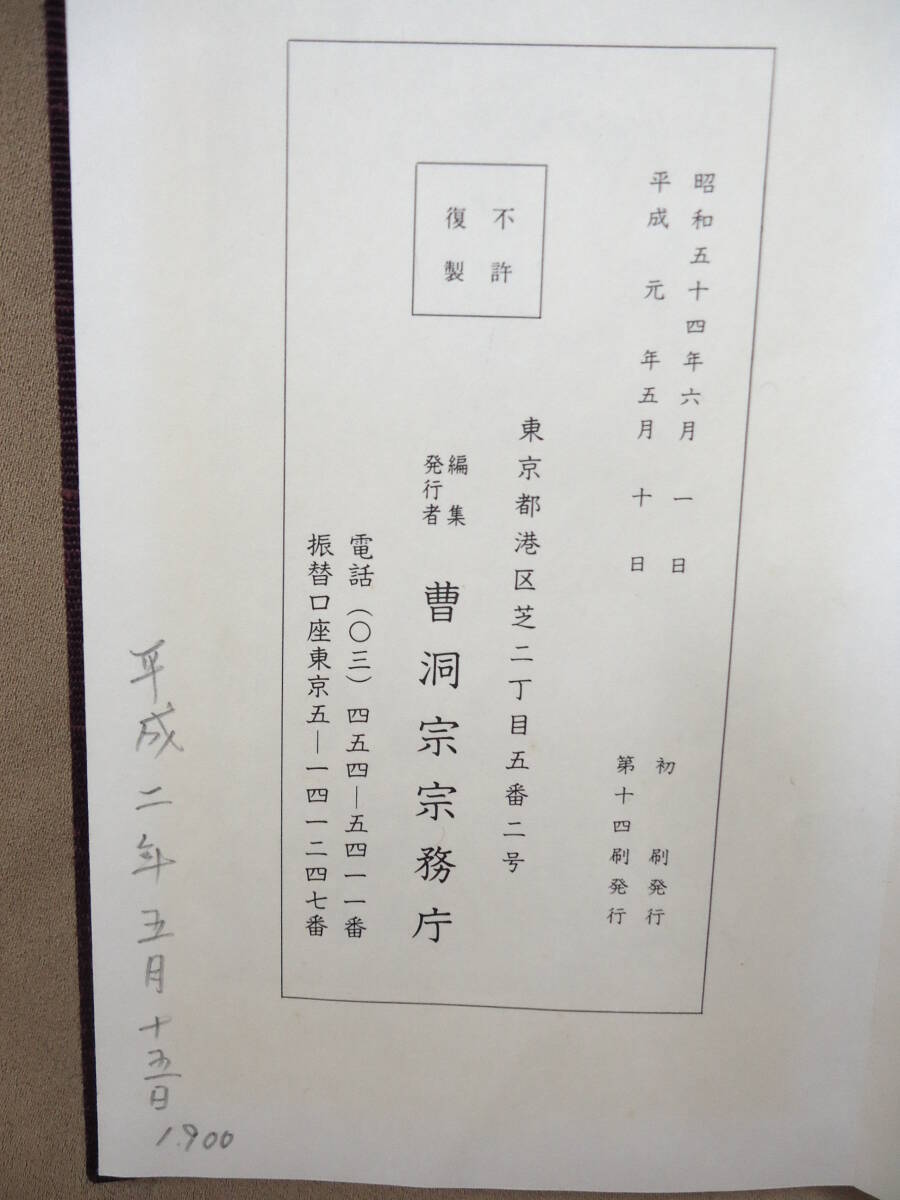 昭和五十四年六月一日 初刷発行
平成元年五月十日 第十四刷発行
不許
復製
東京都港区芝二丁目五番二号
編集
発行者
曹洞宗宗務庁
電話（〇三）四五四―五四一一番
振替口座東京五―一四一二四七番
平成二年五月十五日
1.900